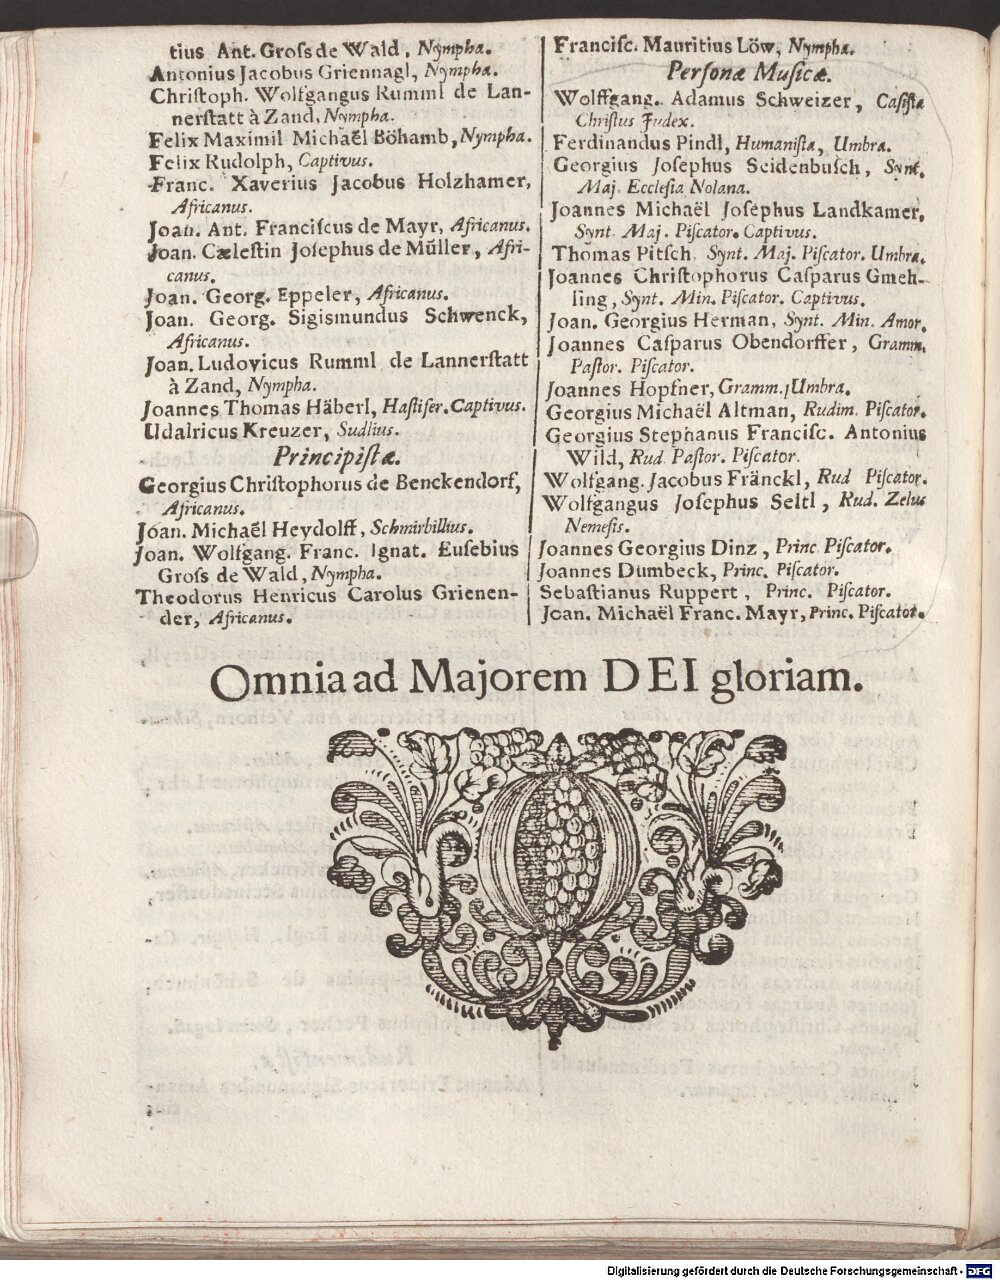 tius Ant. Groſs de Wald, Nympha.
Antonius Jacobus Griennagl, Nympha.
Chriſtoph. Wolfgangus Rumml de Lan-
nerſtatt à Zand, Nympha.
Felix Maximil Michaël Böhamb, Nympha.
Felix Rudolph, Captivus.
Franc. Xaverius Jacobus Holzhamer,
Africanus.
Joan. Ant. Franciſcus de Mayr, Africanus.
Joan. Cæleſtin Joſephus de Müller, Afri-
canus.
Joan. Georg. Eppeler, Africanus.
Joan. Georg. Sigismundus Schwenck,
Africanus.
Joan. Ludovicus Rumml de Lannerſtatt
à Zand, Nympha.
Joannes Thomas Häberl, Haſtifer. Captivus.
Udalricus Kreuzer, Sudlius.
Principiſtæ.
Georgius Chriſtophorus de Benckendorf,
Africanus.
Joan. Michaël Heydolff, Schmirbillius.
Joan. Wolfgang. Franc. Ignat. Euſebius
Groſs de Wald, Nympha.
Theodorus Henricus Carolus Grienen-
der, Africanus.
Franciſc. Mauritius Löw, Nympha.
Perſonæ Muſicæ.
Wolffgang. Adamus Schweizer, Caſiſta
Chriſtus Judex.
Ferdinandus Pindl, Humaniſta, Umbra.
Georgius Joſephus Seidenbuſch, Synt.
Maj. Eccleſia Nolana.
Joannes Michaël Joſephus Landkamer,
Synt. Maj. Piſcator. Captivus.
Thomas Pitſch. Synt. Maj. Piſcator. Umbra.
Joannes Chriſtophorus Caſparus Gmeh-
ling, Synt. Min. Piſcator. Captivus.
Joan. Georgius Herman, Synt. Min. Amor.
Joannes Caſparus Obendorffer, Gramm.
Paſtor. Piſcator.
Joannes Hopfner, Gramm. Umbra.
Georgius Michaël Altman, Rudim. Piſcator.
Georgius Stephanus Franciſc. Antonius
Wild, Rud. Paſtor. Piſcator.
Wolfgang. Jacobus Fränckl, Rud Piſcator.
Wolfgangus Joſephus Seltl, Rud. Zelus
Nemeſis.
Joannes Georgius Dinz, Princ. Piſcator.
Joannes Dumbeck, Princ. Piſcator.
Sebaſtianus Ruppert, Princ. Piſcator.
Joan. Michaël Franc. Mayr, Princ. Piſcator.
Omnia ad Majorem DEI gloriam.
Digitalisierung gefördert durch die Deutsche Forschungsgemeinschaft - DFG